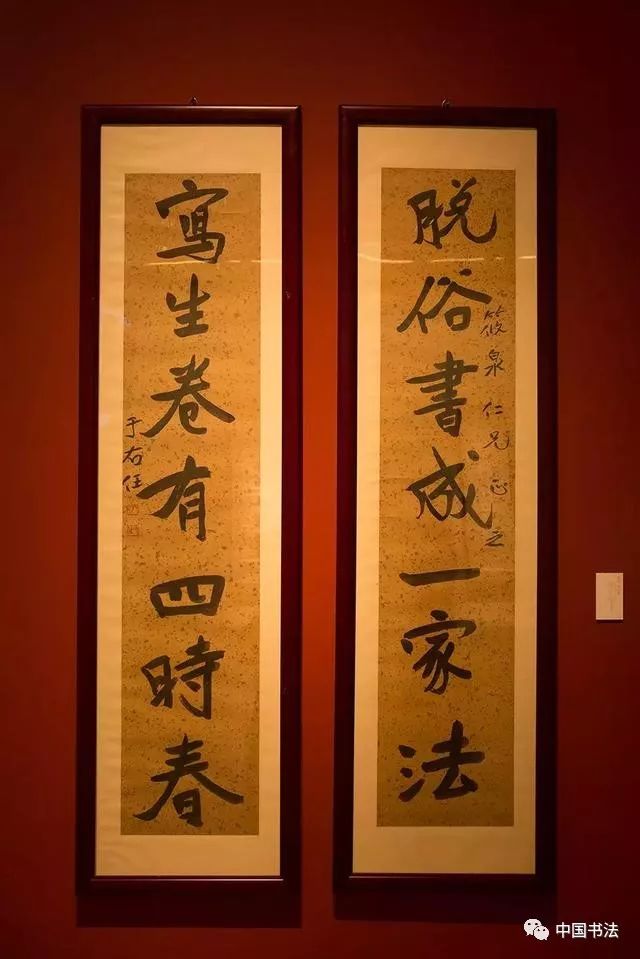 脱俗書成一家法
筱泉仁兄正之
寫生卷有四時春
于右任
中国书法